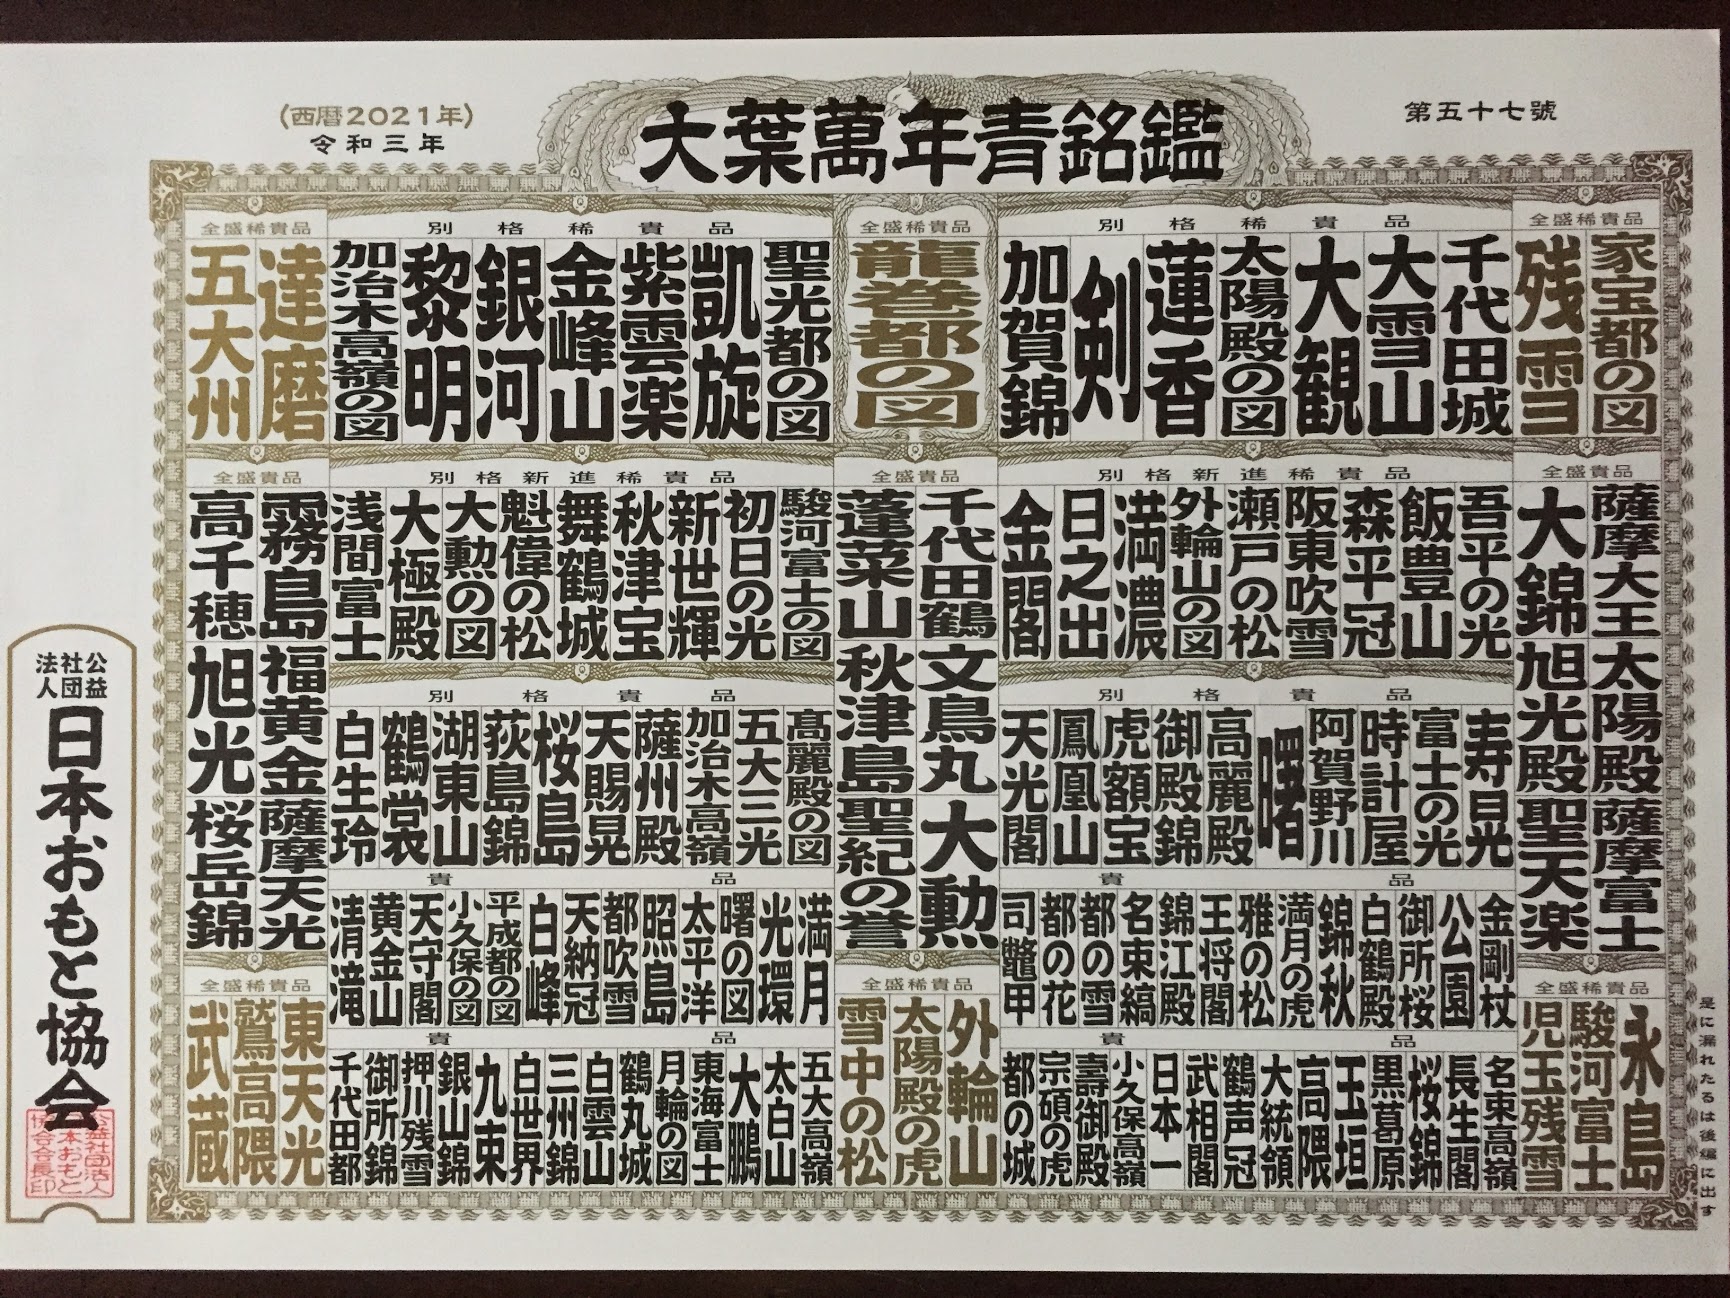 第五十七號
大葉萬年青銘鑑
(西暦2021年)
令和三年
全盛稀貴品
家宝都の図
残雪
別格稀貴品
千代田城
大雪山
大観
太陽殿の図
蓮香
剣
加賀錦
全盛稀貴品
龍巻都の図
別格稀貴品
聖光都の図
凱旋
紫雲楽
金峰山
銀河
黎明
加治木高嶺の図
全盛稀貴品
達磨
五大州
全盛貴品
薩摩大王
太陽殿
薩摩富士
大錦
旭光殿
聖天楽
別格新進稀貴品
吾平の光
飯豊山
森平冠
阪東吹雪
瀬戸の松
外輪山の図
満濃
日之出
金閣
全盛貴品
千代田鶴
文鳥丸
大勲
蓬莱山
秋津島
聖紀の誉
別格新進稀貴品
駿河富士の図
初日の光
新世輝
秋津宝
舞鶴城
魁偉の松
大勲の図
大極殿
浅間富士
全盛貴品
霧島
福黄金
薩摩天光
高千穂
旭光
桜岳錦
別格貴品
寿晃
富士の光
時計屋
阿賀野川
曙
高麗殿
御殿錦
虎額宝
鳳凰山
天光閣
別格貴品
高麗殿の図
五大三光
加治木高嶺
薩州殿
天賜晃
桜島
荻島錦
湖東山
鶴裳
白生玲
貴品
金剛杖
公園
御所桜
白鶴殿
錦秋
満月の虎
雅の松
王将閣
錦江殿
名東縞
都の雪
都の花
司鼈甲
貴品
満月
光環
曙の図
太平洋
照島
都吹雪
天納冠
白峰
平成都の図
小久保の図
天守閣
黄金山
清滝
全盛稀貴品
永島
駿河富士
児玉残雪
貴品
名東高嶺
長生閣
桜錦
黒葛原
玉垣
高隈
大統領
鶴声冠
武相閣
日本一
小久保高嶺
壽御殿
宗碩の虎
都の城
全盛稀貴品
外輪山
太陽殿の虎
雪中の松
貴品
五大高嶺
太白山
大鵬
東海富士
月輪の図
鶴丸城
白雲山
三州錦
白世界
九東
銀山錦
押川残雪
御所錦
千代田都
全盛稀貴品
東天光
鷲高隈
武蔵
是に漏れたるは後編に出す
公益社団法人
日本おもと協会
公益社団法人
日本おもと
協会会長印